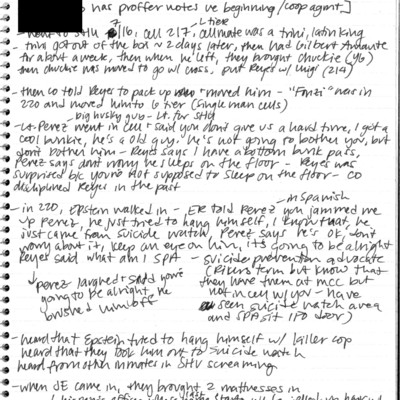 has proffer notes re beginning/coop agmt]
7
L tier
- went to SHU 16, cell 217, cellmate was a trini, latin king
- trini got out of the box ~2 days later, then had Gilbert
for about a week, then when he left, they brought chuckie (46)
then chuckie was moved to go w/ cross, put Reyes w/ Luigi (214)
- then co told Reyes to pack up + moved him - "Fonzi" near in
220 and moved him to G tier (single man cells)
big husky guy - Lt. for SHU
- Lt. Perez went in cell + said you don't give us a hard time, I got a
cool bunkie, he's a old guy. he's not going to bother you, but
don't bother him - Reyes says I have a bottom bunk pass,
Perez says don't worry he sleeps on the floor - Reyes was
surprised b/c you're not supposed to sleep on the floor - CO
disciplined Reyes in the past
in Spanish
- in 220, Epstein walked in - ER told Perez you jammed me
up Perez, he just tried to hang himself, I know that, he
just came from suicide watch, Perez says he's ok, don't
worry about it, keep an eye on him, it's going to be alright
Reyes said what am I SPA - suicide prevention advocate
(Rikers term but know that
they have them at MCC but
not in cell w/ you - have
seen suicide watch area
and SPA sit I/F/O door)
Perez laughed + said you're
going to be alright, he
brushed him off
- heard that Epstein tried to hang himself w/ killer cop
heard that they took him out to suicide watch
heard from other inmates in SHU screaming
- when JE came in, they brought 2 mattresses in